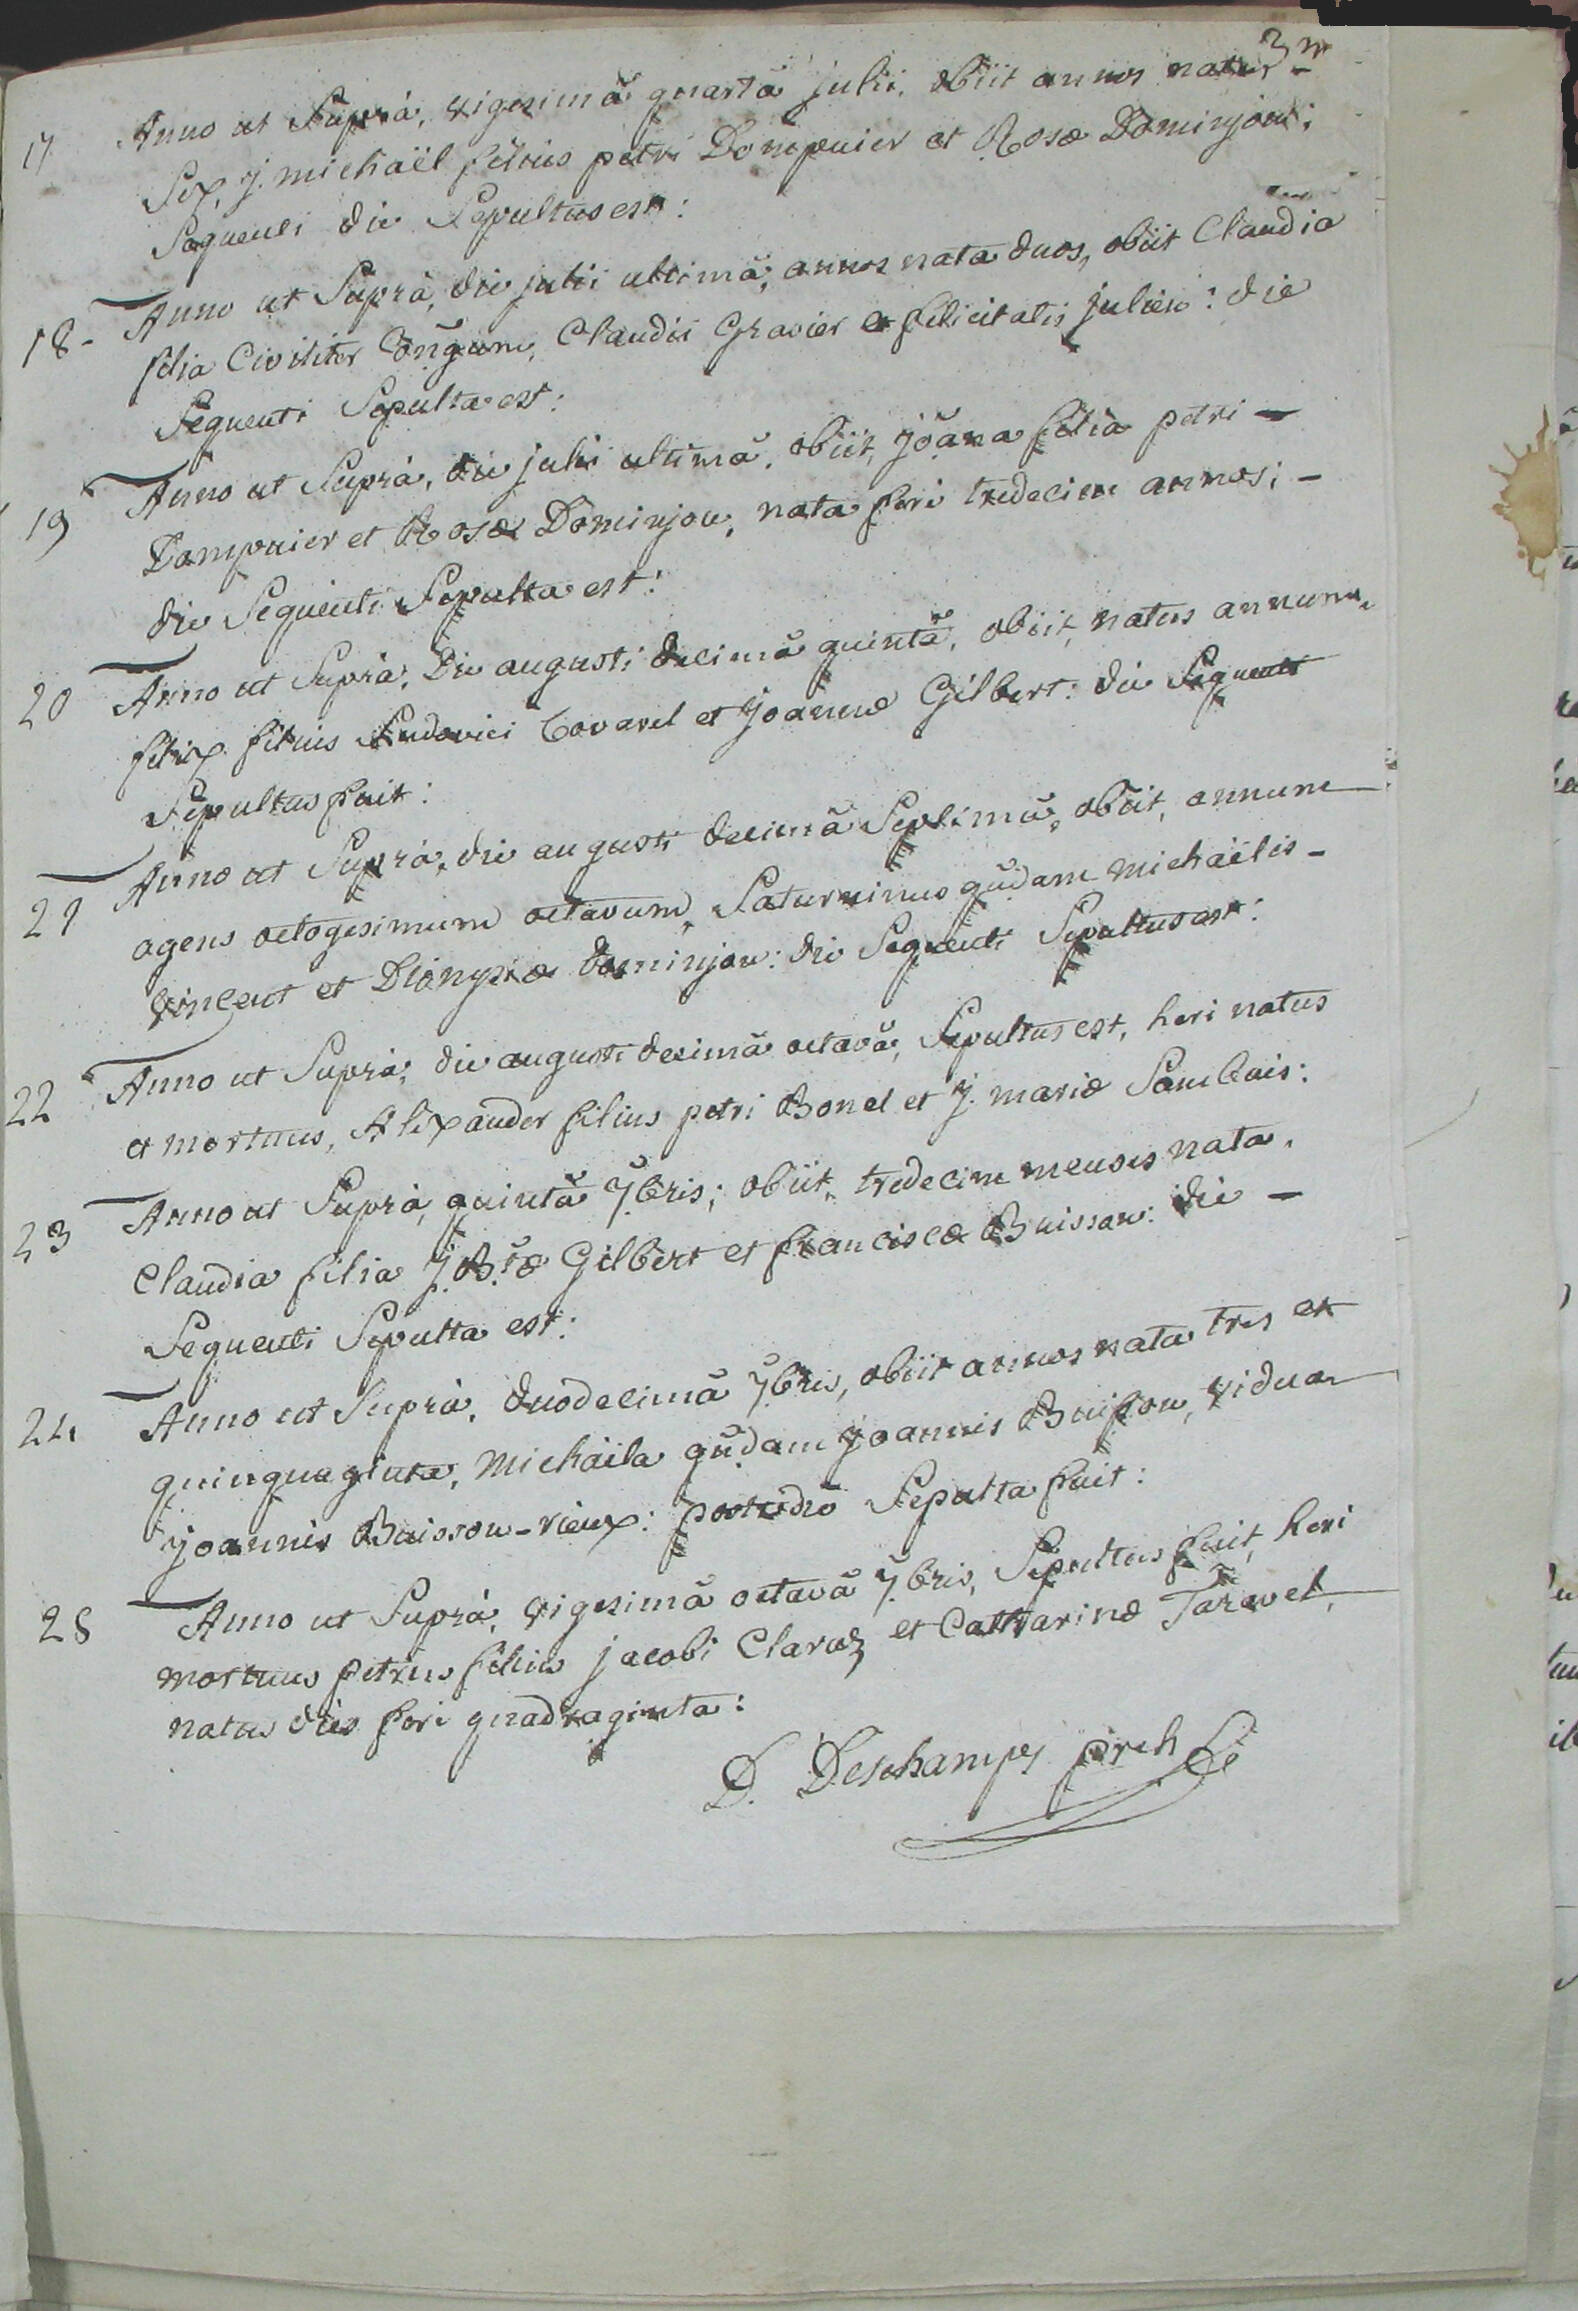 3
17 Anno ut Suprà, vigesimâ quartâ julii, obiit annos natus
Sex, j. michaël filius petri Dompnier et Rosæ Dominjon;
Sequenti die Sepultus est:
18- Anno ut Suprà, die julii ultimâ, annos nata duos, obiit Claudia
filia Civiliter Conjgum, Claudii Gravier et felicitatis julien: die
Sequenti Sepulta est:
19 Anno ut Suprà, die julii ultimâ, obiit, joana filia petri -
Dompnier et Rosæ Dominjon, nata feré tredecim annos; -
die Sequenti Sepulta est:
20 Anno ut Suprà, Die augusti decimâ quintâ, obiit, natus annum,
felix filius Ludovici Covarel et joannæ Gilbert: die Sequenti
Sepultus fuit:
21 Anno ut Suprà, die augusti decimâ Septimâ, obiit, annum
agens octogesimum octavum, Saturninus qudam michaëlis -
vincent et Dionysiæ dominjon: die Sequenti Sepultus est:
22 Anno ut Suprà, die augusti decimâ octavâ, Sepultus est, heri natus
et mortuus, Alexander filius petri Bonel et j. mariæ Sambuis:
23 Anno ut Suprà, quintâ 7bris; obiit, tredecim menses nata,
Claudia filia j. Btæ Gilbert et franciscæ Buisson: die -
Sequenti Sepulta est:
24 Anno ut Suprà, duodecimâ 7bris, obiit annos nata tres et
quinquaginta, michäela qudam joannis Buisson, vidua
joannis Buisson-vieux: postridiè Sepulta fuit:
25 Anno ut Suprà, vigesimâ octavâ 7bris, Sepultus fuit, heri
mortuus petrus filius jacobi Claraz et Catharinæ Taravel,
natus dies feré quadraginta:
D. Deschamps prch